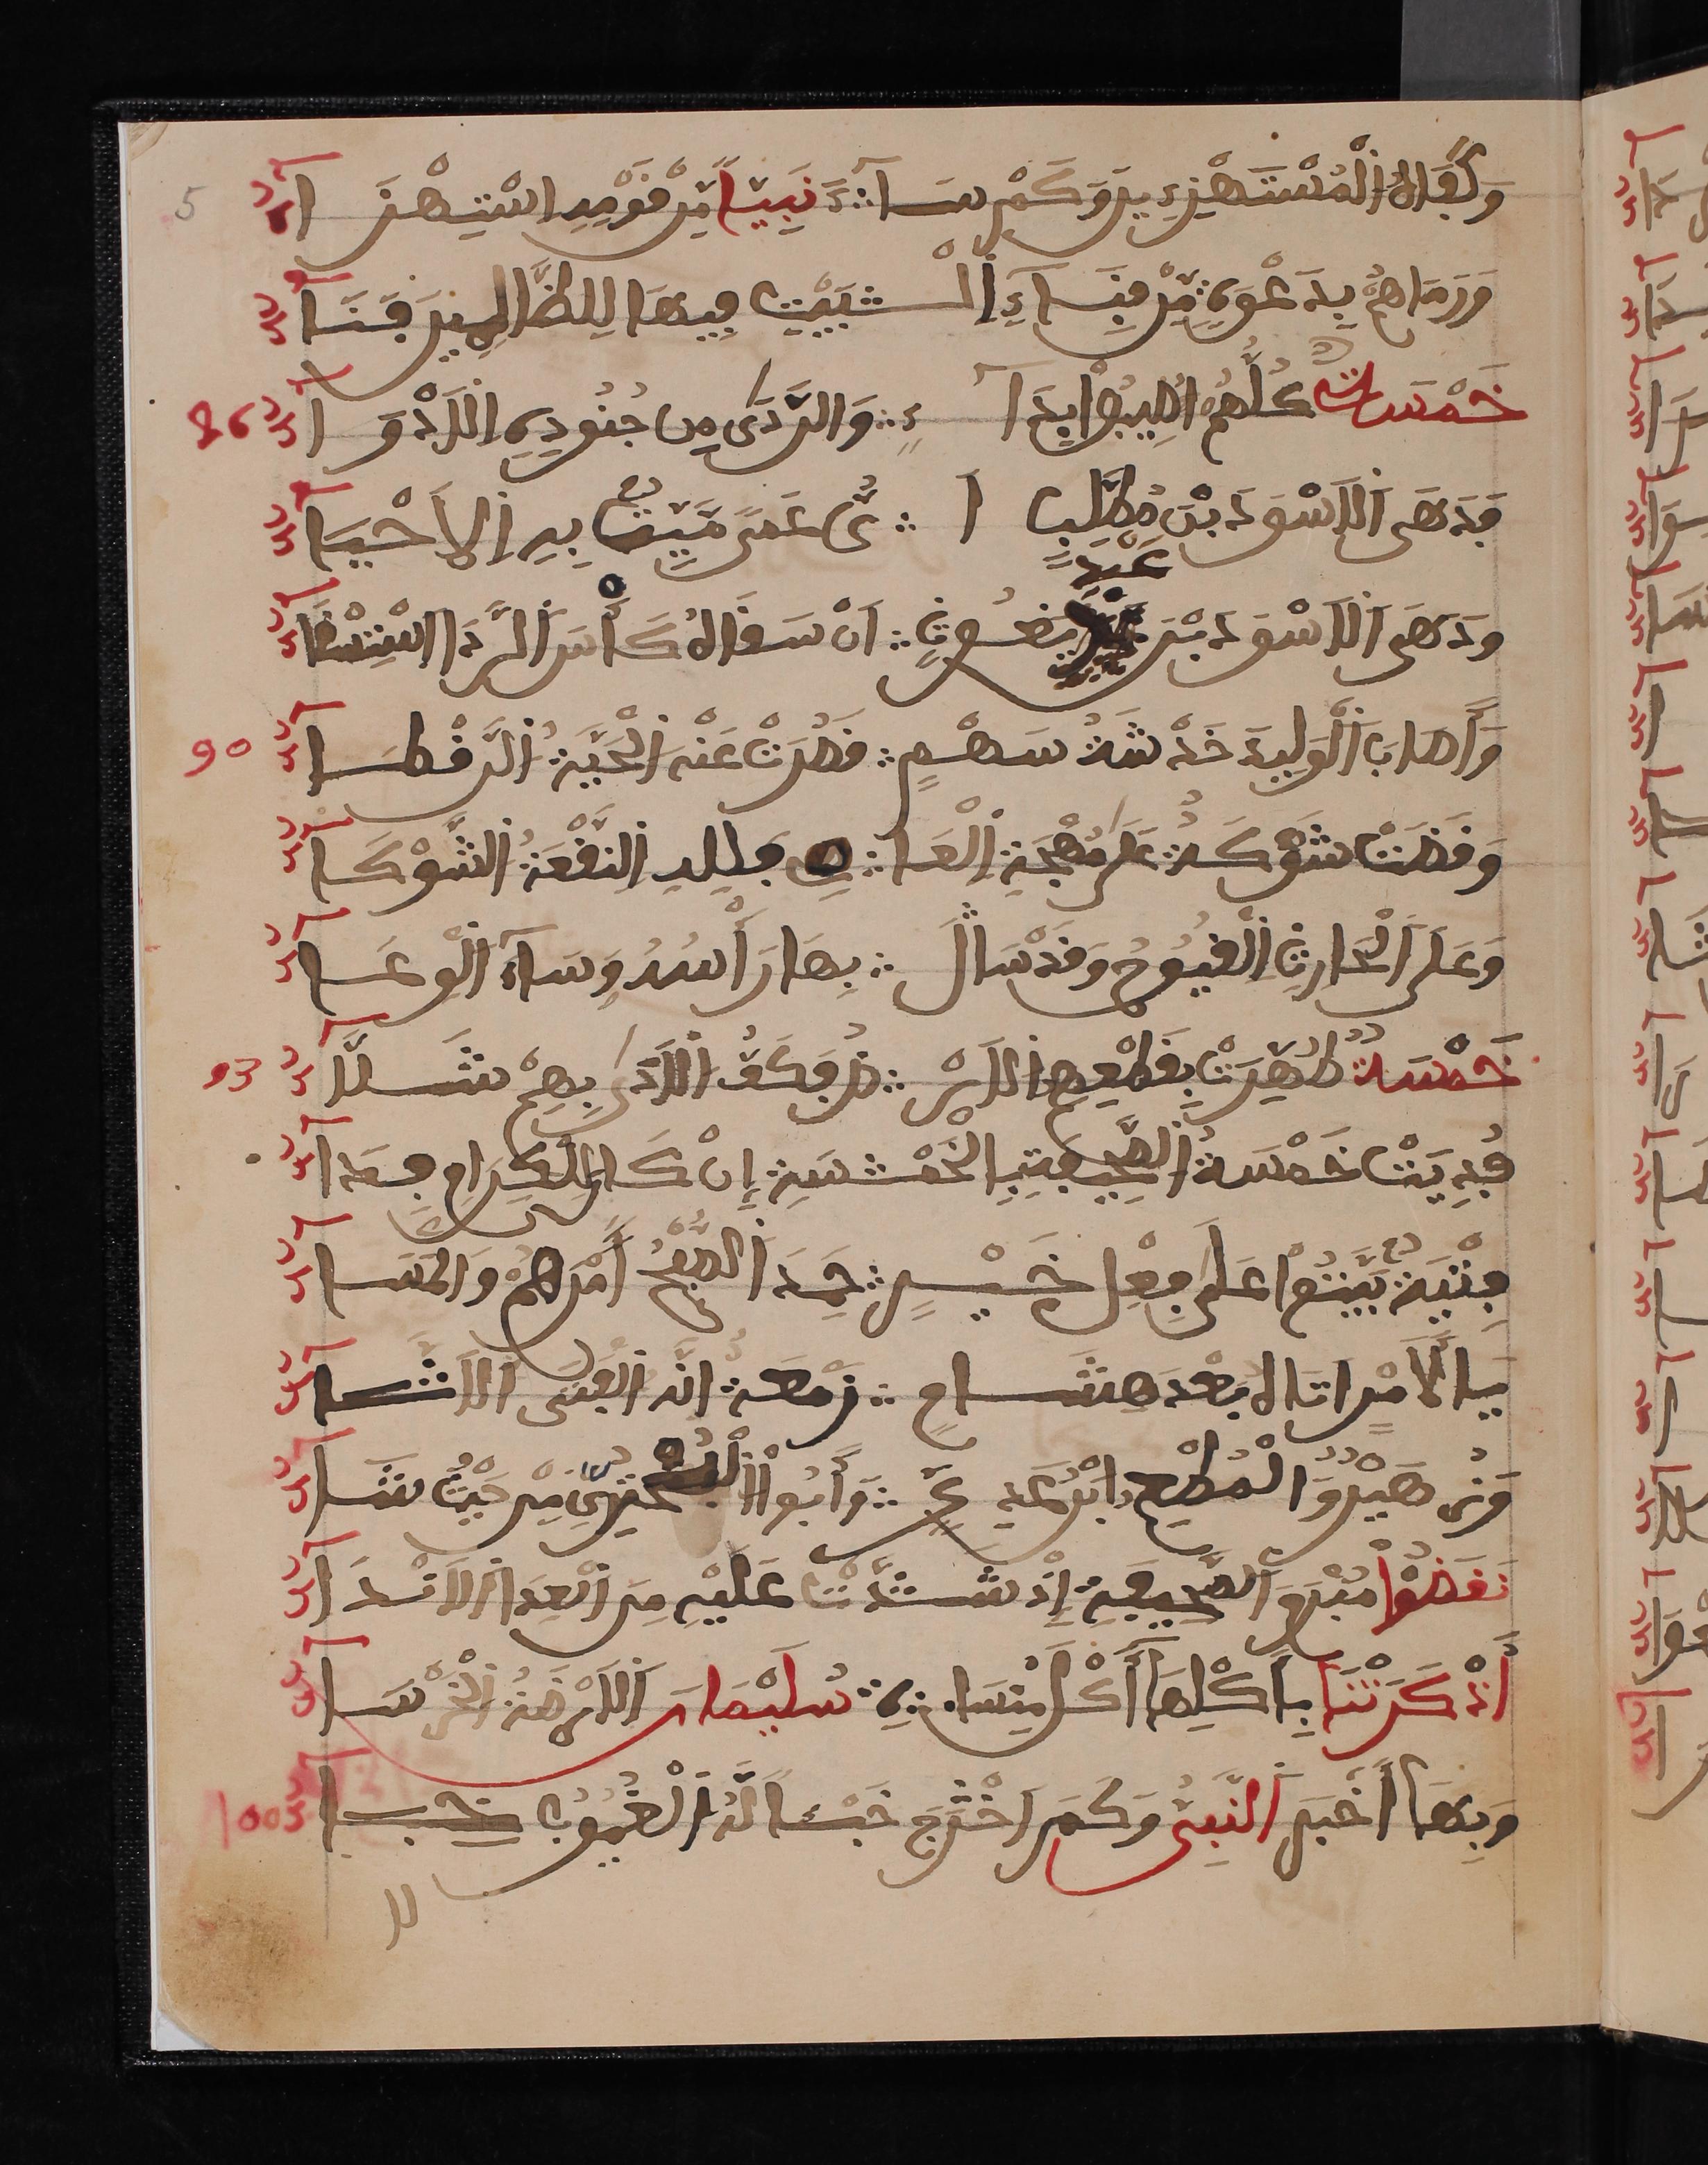 5
وَكَفَاهُ الْمُسْتَهْزِءِينَ وَكَمْ سَآ ∴ ءَ نَبِيّاً مِن قَوْمِهِ اسْتِهْزَاءُ
وَرَمَاهُمْ بِدَعْوَةٍ مِّن فِنَآءِ الْبَيْتِ فِيهَا لِلظَّالِمِينَ فَنَاءُ
خَمْسَةٌ كُلُّهُمْ أُصِيبُوا بِدَآ ∴ ءٍ وَالرَّدَى مِن جُنُودِهِ الَادْوَاءُ 86
فَدَهَى الَاسْوَدَ بْنَ مُطَّلِبٍ ا ∴ يُّ عَمىً مَيِّتٌ بِهِ الاَحْيَاءُ
وَدَهَى الَاسْوَدَ بْنَ عَبْدِ يَغُوثٍ ∴ اَنْ سَقَاهُ كَأْسَ الرَّدَا اسْتِسْقَاءُ
وَأَصَابَ الْوَلِيدَ خَدْشَةُ سَهْمٍ ∴ قَصُرَتْ عَنْهَ الْحَيَّةُ الرَّقْطَاءُ 90
وَقَضَتْ شَوْكَةٌ عَلَى مُهْجَةِ الْعَا ∴ صِ فَلِلهِ النَّقْعَةُ الشَّوْكَاءُ
وَعَلَى الْحَارِثِ الْقُيُوحُ وَقَدْ سَالَ ∴ بِهَا رَأْسُهُ وَسَآءَ الْوِعَاءُ
خَمْسَةٌ طُهِّرَتْ بِقَطْعِهِمِ الَارْ ∴ ضُ فَكَفُّ الَاذَى بِهِمْ شَلَّاءُ 93
فُدِيَتْ خَمْسَةُ الصَّحِيفَةِ بِالْخَمْسَةِ إِنْ كَانَ لِلْكِرَامِ فِدَاءُ
فِتْيَةٌ بَيَّتُوا عَلَى فِعْلِ خَيْرٍ ∴ حَمِدَ الصُّبْحُ أَمْرَهُمْ وَالْمَسَاءُ
يَا لَأَمْرٍ اتَاهُ بَعْدَ هِشَامٍ ∴ زَمْعَةٌ انَّهُ الْفَتَى الَاتَّاءُ
وَزُهَيْرٌ وَالْمُطْعِمِ ابْنُ عَدِيٍّ ∴ وَأَبُوا الْبَخْتَرِيِّ مِنْ حَيْثُ شَاءُ
نَقَضُوا مُبْرَمَ الصَّحِيفَةِ إِذْ شَدَّتْ عَلَيْهِ مِنَ الْعِدَا الَانْدَاءُ
أَذْكَرَتْنَا بِأَكْلِهَا أَكْلَ مِنْسَا ∴ ةِ سُلَيْمَانَ الَارْضَةُ الْخَرْسَاءُ
وَبِهَا أَخْبَرَ النَّبِىُّ وَكَمْ اَخْرَجَ خَبْئاً لَهُ الْغُيُوبُ خِبَاءُ 100